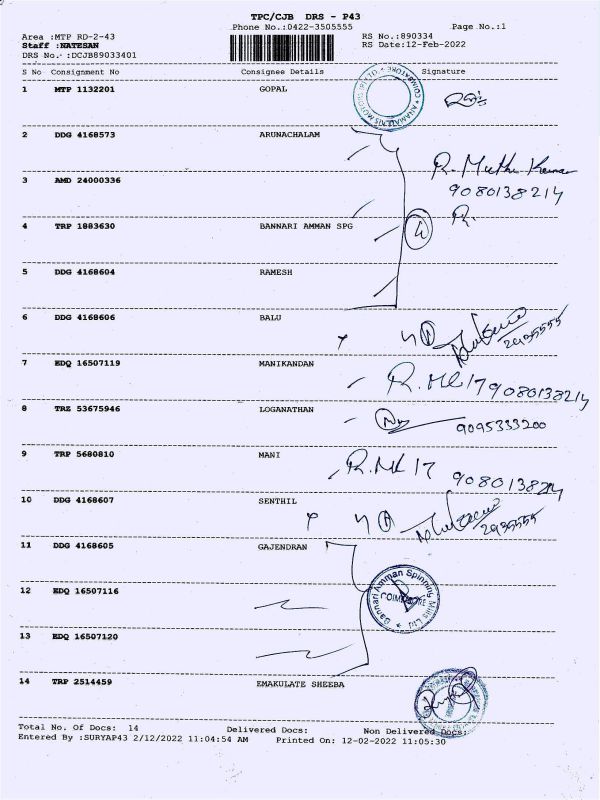 TPC/CJB DRS - P43
Phone No.:0422-3505555
Page No.:1
Area :MTP RD-2-43
RS No.:890334
Staff :NATESAN
RS Date:12-Feb-2022
DRS No.:DCJB89033401
S No Consignment No Consignee Details Signature
1 MTP 1132201 GOPAL
2 DDG 4168573 ARUNACHALAM
R. Muthu Kumar
3 AMD 24000336
9080138214
4 TRP 1883630 BANNARI AMMAN SPG
R.
5 DDG 4168604 RAMESH
6 DDG 4168606 BALU
7 EDQ 16507119 MANIKANDAN
9080138214
8 TRZ 53675946 LOGANATHAN
9095333200
9 TRP 5680810 MANI
9080138214
10 DDG 4168607 SENTHIL
11 DDG 4168605 GAJENDRAN
Bannari Amman Spinning Mills Ltd
COIMBATORE
12 EDQ 16507116
13 EDQ 16507120
14 TRP 2514459 EMAKULATE SHEEBA
Total No. Of Docs: 14 Delivered Docs: Non Delivered Docs:
Entered By :SURYAP43 2/12/2022 11:04:54 AM Printed On: 12-02-2022 11:05:30